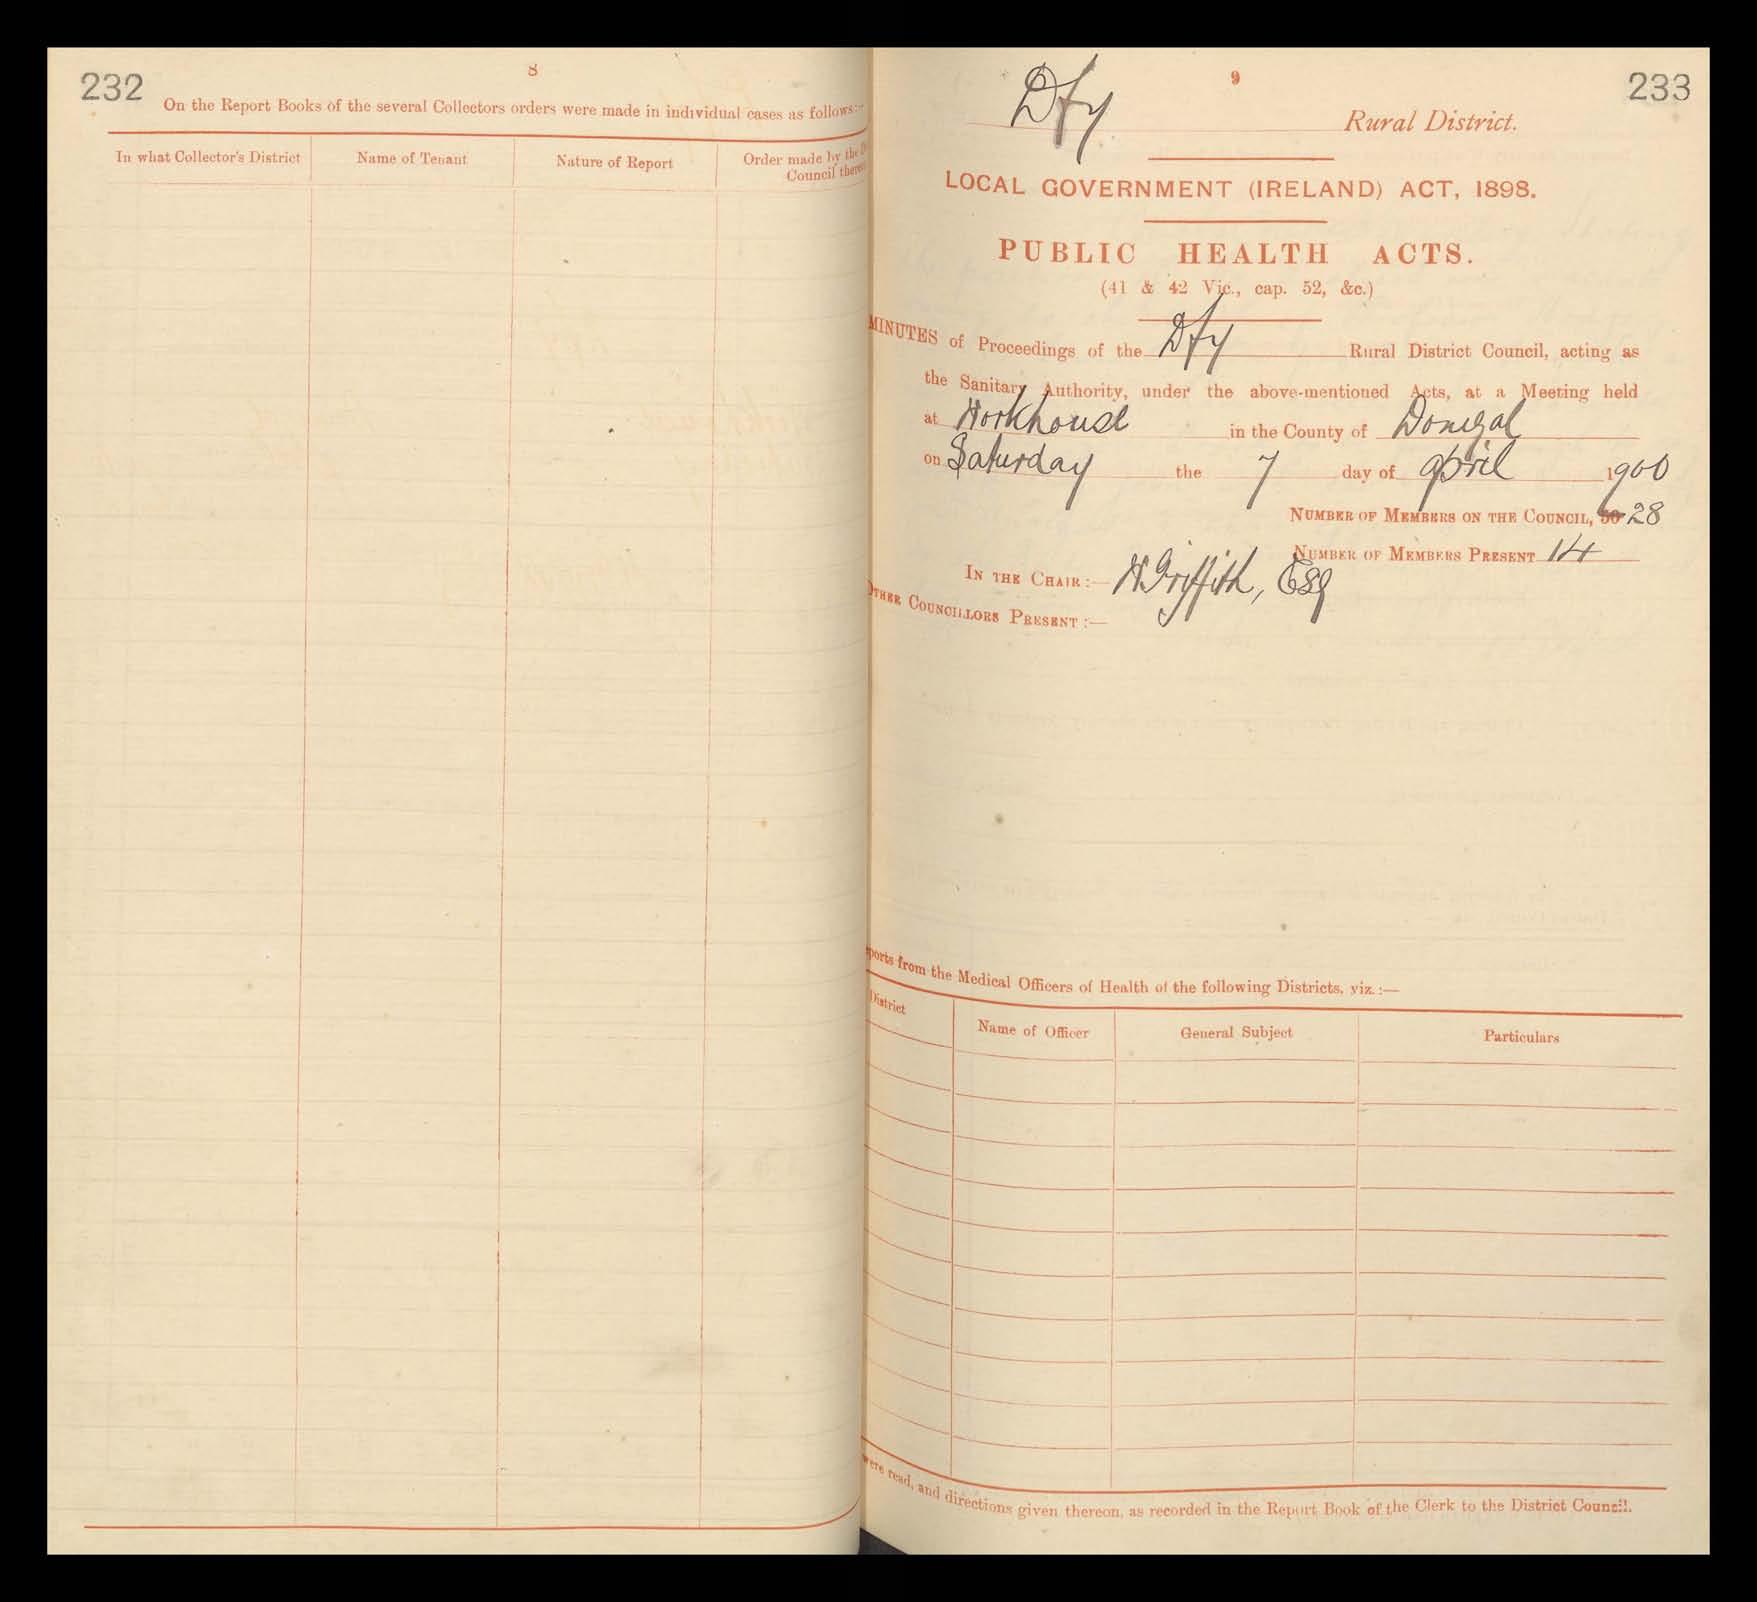 232
8
On the Report Books of the several Collectors orders were made in individual cases as follows:—
In what Collector's District
Name of Tenant
Nature of Report
Order made by the
Council
233
9
Dfy Rural District.
LOCAL GOVERNMENT (IRELAND) ACT, 1898.
PUBLIC HEALTH ACTS.
(41 & 42 Vic., cap. 52, &c.)
MINUTES of Proceedings of the Dfy Rural District Council, acting as
the Sanitary Authority, under the above-mentioned Acts, at a Meeting held
at Workhouse in the County of Donegal
on Saturday the 7 day of April 1900
NUMBER OF MEMBERS ON THE COUNCIL, 28
NUMBER OF MEMBERS PRESENT 14
IN THE CHAIR:— W Griffith, Esq
OTHER COUNCILLORS PRESENT:—
ports from the Medical Officers of Health of the following Districts, viz.:—
District
Name of Officer
General Subject
Particulars
were read, and directions given thereon, as recorded in the Report Book of the Clerk to the District Council.